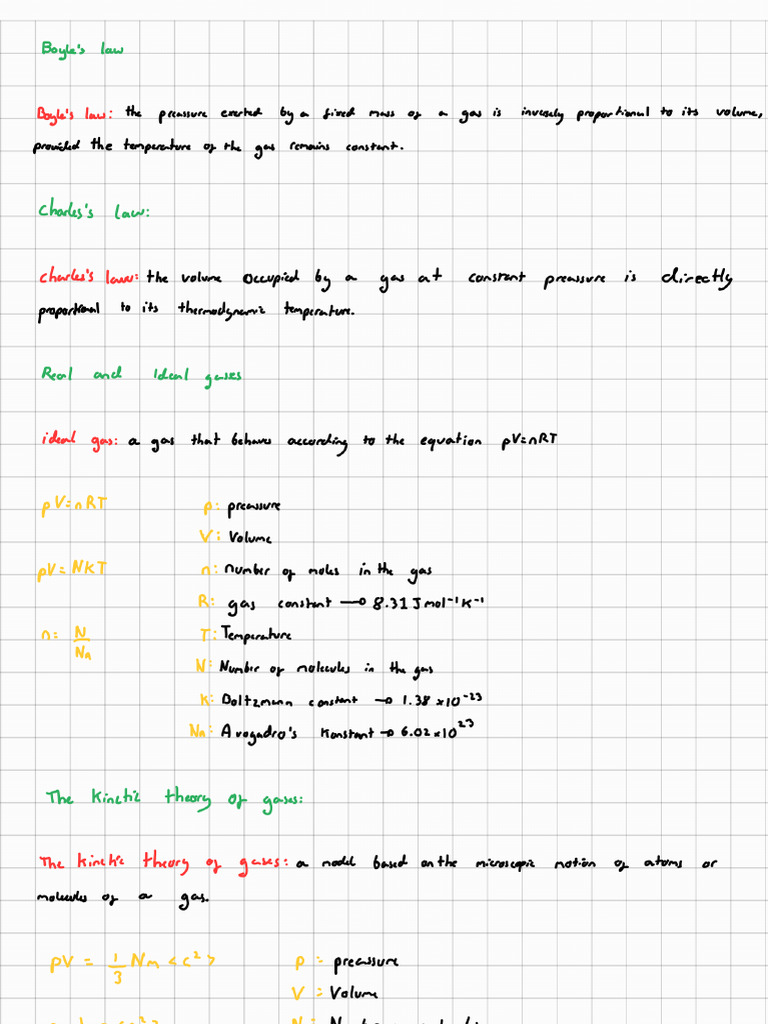 Boyle's law
Boyle's law: the preassure exerted by a fixed mass of a gas is inversely proportional to its volume,
provided the temperature of the gas remains constant.
Charles's law:
Charles's law: the volume occupied by a gas at constant preassure is directly
proportional to its thermodynamic temperature.
Real and Ideal gases
ideal gas: a gas that behaves according to the equation pV=nRT
pV=nRT p: preassure
V: Volume
pV=NKT n: number of moles in the gas
R: gas constant → 8.31 J mol⁻¹ K⁻¹
n: N/NA T: Temperature
N: Number of molecules in the gas
K: Boltzmann constant → 1.38 ×10⁻²³
NA: Avogadro's Konstant → 6.02×10²³
The kinetic theory of gases:
The kinetic theory of gases: a model based on the microscopic motion of atoms or
molecules of a gas.
pV = 1/3 Nm <c²> p: preassure
V: Volume